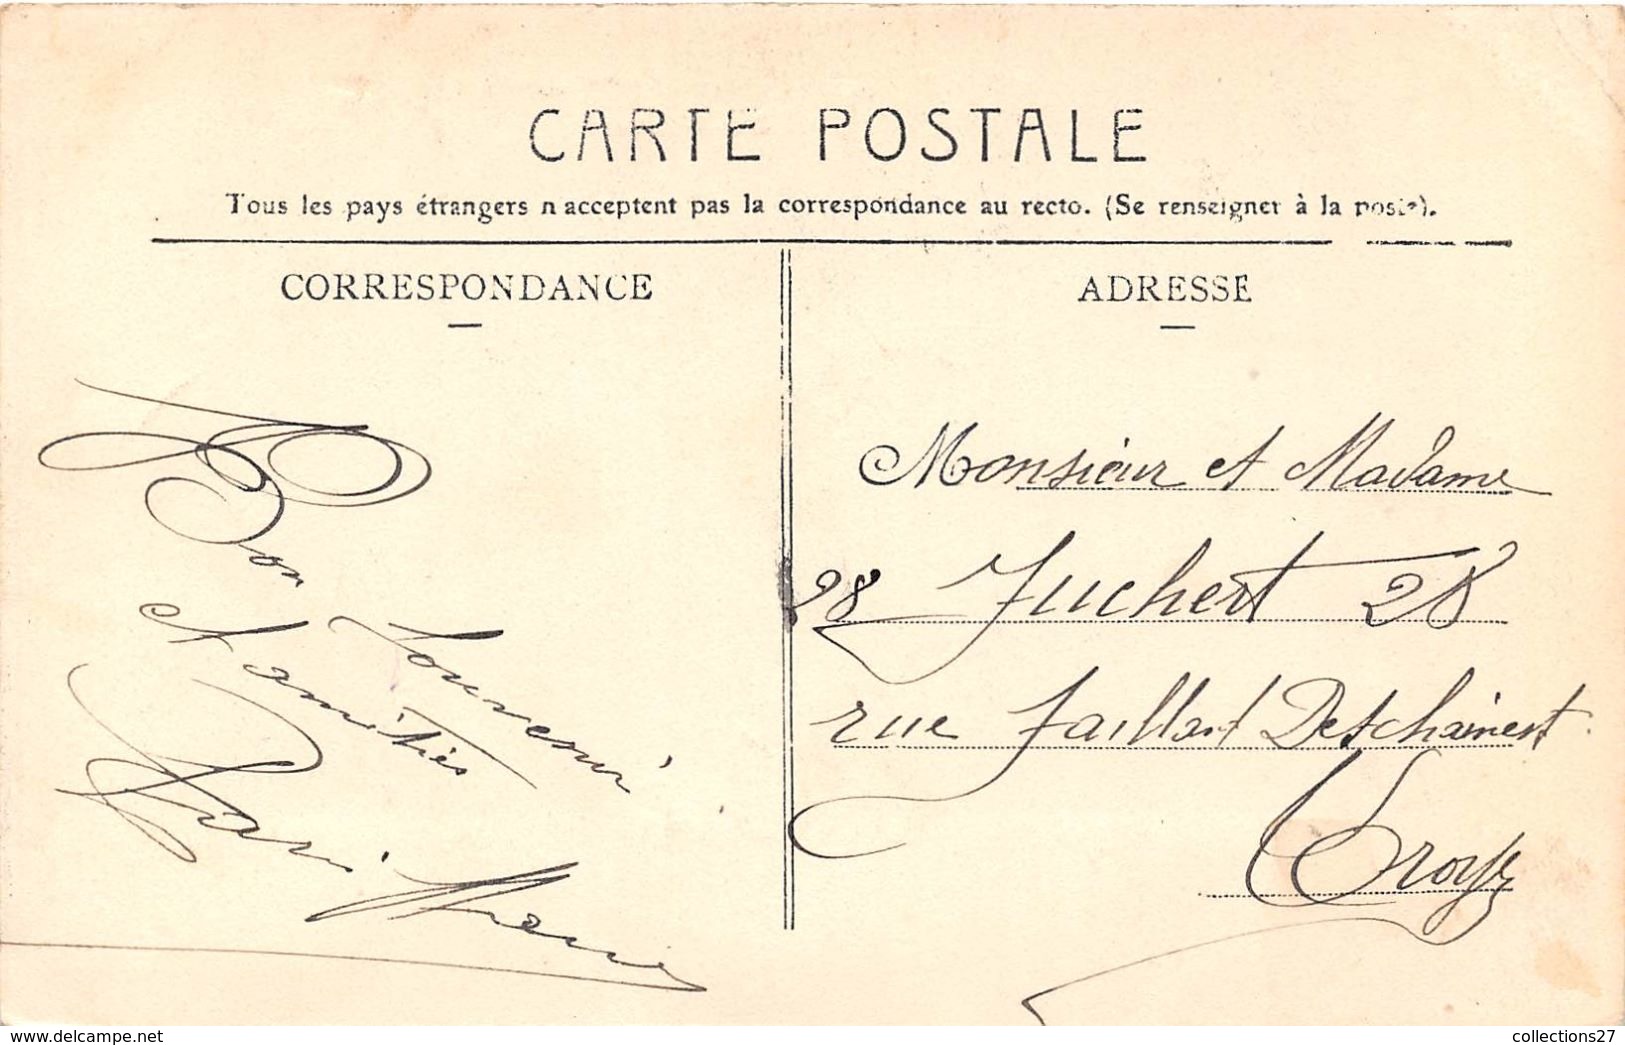 CARTE POSTALE
Tous les pays étrangers n'acceptent pas la correspondance au recto. (Se renseigner à la poste).
CORRESPONDANCE
ADRESSE
Bon Souvenir
et amitiés
Monsieur et Madame
28 Juchert 28
rue Jaillant Detschainest.
Troyes
https://www.delcampe.net
collections27